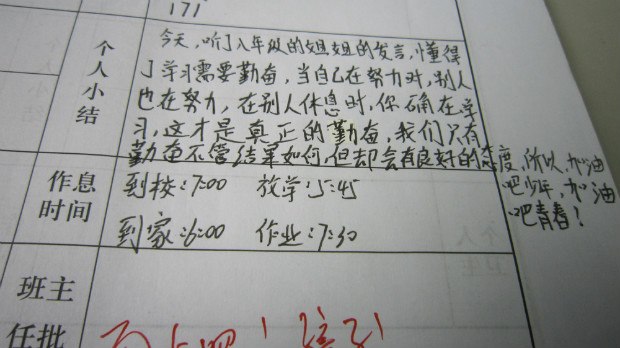 171
个人小结
今天,听了八年级的姐姐的发言,懂得
了学习需要勤奋,当自己在努力时,别人
也在努力,在别人休息时,你确在学
习,这才是真正的勤奋,我们只有
勤奋不管结果如何,但却会有良好的态度,所以,加油
吧少年,加油
吧青春!
作息时间
到校:7:00 放学:5:45
到家:6:00 作业:7:30
班主
任批